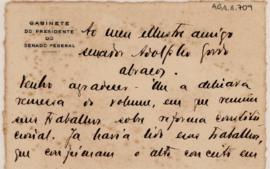 AG1.1.709
GABINETE
DO PRESIDENTE
DO
SENADO FEDERAL
Ao meu illustre amigo
senador Adolpho Gordo
abraços.
Venho agradecer-lhe a delicada
remessa do volume, em que reuniu
seus trabalhos sobre reforma constitu
cional. Já havia lido esses trabalhos,
que confirmam o alto conceito em